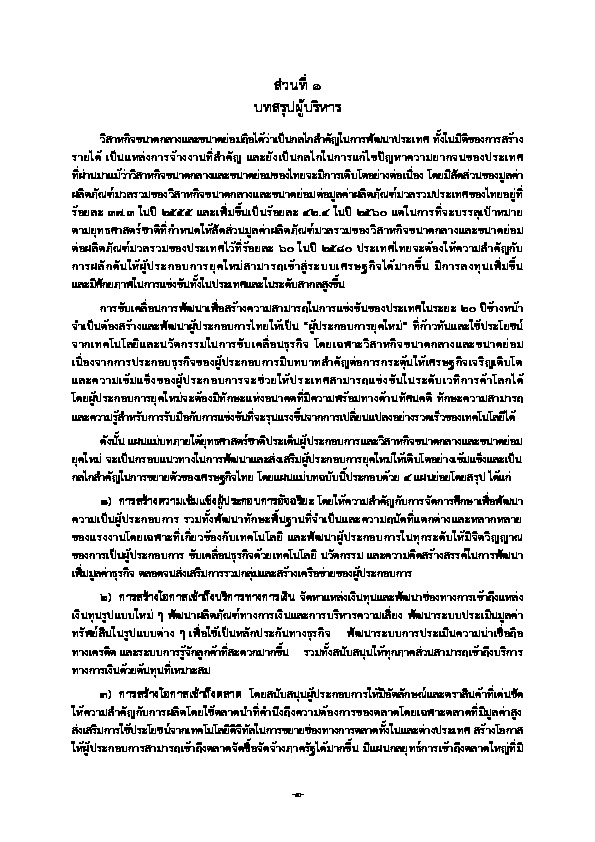 ส่วนที่ ๑
บทสรุปผู้บริหาร
วิสาหกิจขนาดกลางและขนาดย่อมถือได้ว่าเป็นกลไกสำคัญในการพัฒนาประเทศ ทั้งในมิติของการสร้าง
รายได้ เป็นแหล่งการจ้างงานที่สำคัญ และยังเป็นกลไกในการแก้ไขปัญหาความยากจนของประเทศ
ที่ผ่านมาแม้ว่าวิสาหกิจขนาดกลางและขนาดย่อมของไทยจะมีการเติบโตอย่างต่อเนื่อง โดยมีสัดส่วนของมูลค่า
ผลิตภัณฑ์มวลรวมของวิสาหกิจขนาดกลางและขนาดย่อมต่อมูลค่าผลิตภัณฑ์มวลรวมประเทศของไทยอยู่ที่
ร้อยละ ๓๗.๓ ในปี ๒๕๕๕ และเพิ่มขึ้นเป็นร้อยละ ๔๒.๔ ในปี ๒๕๖๐ แต่ในการที่จะบรรลุเป้าหมาย
ตามยุทธศาสตร์ชาติที่กำหนดให้สัดส่วนมูลค่าผลิตภัณฑ์มวลรวมของวิสาหกิจขนาดกลางและขนาดย่อม
ต่อผลิตภัณฑ์มวลรวมของประเทศไว้ที่ร้อยละ ๖๐ ในปี ๒๕๘๐ ประเทศไทยจะต้องให้ความสำคัญกับ
การผลักดันให้ผู้ประกอบการยุคใหม่สามารถเข้าสู่ระบบเศรษฐกิจได้มากขึ้น มีการลงทุนเพิ่มขึ้น
และมีศักยภาพในการแข่งขันทั้งในประเทศและในระดับสากลสูงขึ้น
การขับเคลื่อนการพัฒนาเพื่อสร้างความสามารถในการแข่งขันของประเทศในระยะ ๒๐ ปีข้างหน้า
จำเป็นต้องสร้างและพัฒนาผู้ประกอบการไทยให้เป็น "ผู้ประกอบการยุคใหม่" ที่ก้าวทันและใช้ประโยชน์
จากเทคโนโลยีและนวัตกรรมในการขับเคลื่อนธุรกิจ โดยเฉพาะวิสาหกิจขนาดกลางและขนาดย่อม
เนื่องจากการประกอบธุรกิจของผู้ประกอบการมีบทบาทสำคัญต่อการกระตุ้นให้เศรษฐกิจเจริญเติบโต
และความเข้มแข็งของผู้ประกอบการจะช่วยให้ประเทศสามารถแข่งขันในระดับเวทีการค้าโลกได้
โดยผู้ประกอบการยุคใหม่จะต้องมีทักษะแห่งอนาคตที่มีความพร้อมทางด้านทัศนคติ ทักษะความสามารถ
และความรู้สำหรับการรับมือกับการแข่งขันที่จะรุนแรงขึ้นจากการเปลี่ยนแปลงอย่างรวดเร็วของเทคโนโลยีได้
ดังนั้น แผนแม่บทภายใต้ยุทธศาสตร์ชาติประเด็นผู้ประกอบการและวิสาหกิจขนาดกลางและขนาดย่อม
ยุคใหม่ จะเป็นกรอบแนวทางในการพัฒนาและส่งเสริมผู้ประกอบการยุคใหม่ให้เติบโตอย่างเข้มแข็งและเป็น
กลไกสำคัญในการขยายตัวของเศรษฐกิจไทย โดยแผนแม่บทฉบับนี้ประกอบด้วย ๔ แผนย่อยโดยสรุป ได้แก่
๑) การสร้างความเข้มแข็งผู้ประกอบการอัจฉริยะ โดยให้ความสำคัญกับการจัดการศึกษาเพื่อพัฒนา
ความเป็นผู้ประกอบการ รวมทั้งพัฒนาทักษะพื้นฐานที่จำเป็นและความถนัดที่แตกต่างและหลากหลาย
ของแรงงานโดยเฉพาะที่เกี่ยวข้องกับเทคโนโลยี และพัฒนาผู้ประกอบการในทุกระดับให้มีจิตวิญญาณ
ของการเป็นผู้ประกอบการ ขับเคลื่อนธุรกิจด้วยเทคโนโลยี นวัตกรรม และความคิดสร้างสรรค์ในการพัฒนา
เพิ่มมูลค่าธุรกิจ ตลอดจนส่งเสริมการรวมกลุ่มและสร้างเครือข่ายของผู้ประกอบการ
๒) การสร้างโอกาสเข้าถึงบริการทางการเงิน จัดหาแหล่งเงินทุนและพัฒนาช่องทางการเข้าถึงแหล่ง
เงินทุนรูปแบบใหม่ ๆ พัฒนาผลิตภัณฑ์ทางการเงินและการบริหารความเสี่ยง พัฒนาระบบประเมินมูลค่า
ทรัพย์สินในรูปแบบต่าง ๆ เพื่อใช้เป็นหลักประกันทางธุรกิจ พัฒนาระบบการประเมินความน่าเชื่อถือ
ทางเครดิต และระบบการรู้จักลูกค้าที่สะดวกมากขึ้น รวมทั้งสนับสนุนให้ทุกภาคส่วนสามารถเข้าถึงบริการ
ทางการเงินด้วยต้นทุนที่เหมาะสม
๓) การสร้างโอกาสเข้าถึงตลาด โดยสนับสนุนผู้ประกอบการให้มีอัตลักษณ์และตราสินค้าที่เด่นชัด
ให้ความสำคัญกับการผลิตโดยใช้ตลาดนำที่คำนึงถึงความต้องการของตลาดโดยเฉพาะตลาดที่มีมูลค่าสูง
ส่งเสริมการใช้ประโยชน์จากเทคโนโลยีดิจิทัลในการขยายช่องทางการตลาดทั้งในและต่างประเทศ สร้างโอกาส
ให้ผู้ประกอบการสามารถเข้าถึงตลาดจัดซื้อจัดจ้างภาครัฐได้มากขึ้น มีแผนกลยุทธ์การเข้าถึงตลาดใหญ่ที่มี
-๑-